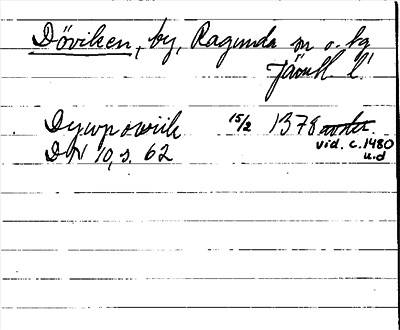 Döviken, by, Ragunda sn o. tg
Jämtl. l.
Dywpowiik 15/2 1378
DN 10, s. 62 vid. c. 1480
u.d